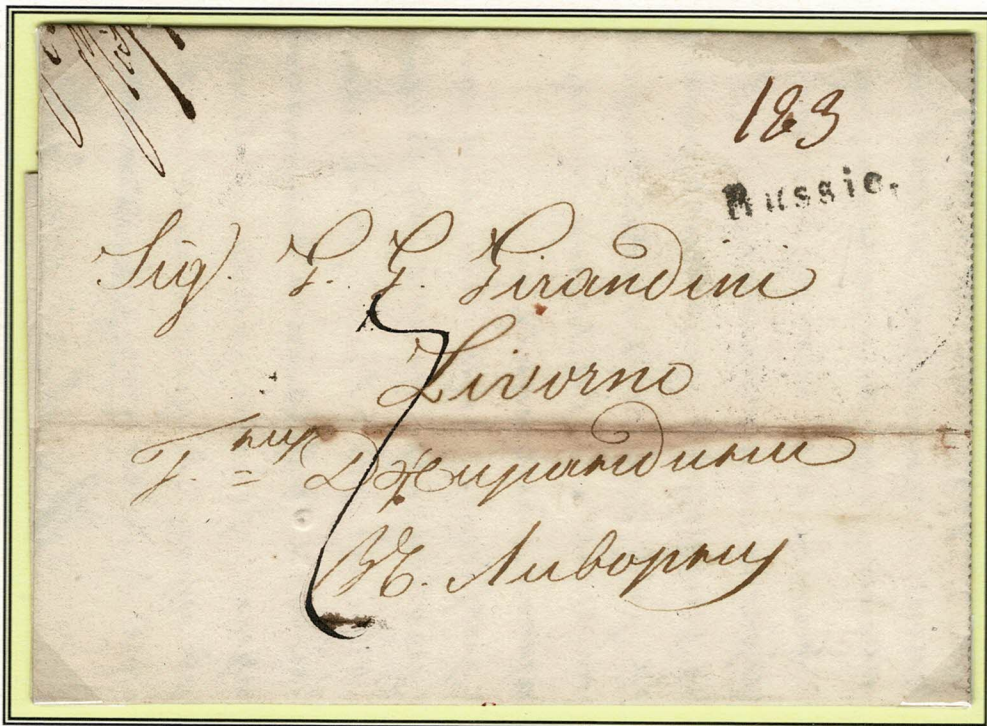 183
Russie.
Sig. G. G. Girandini
Livorno
Джирандини
Въ. Ливорну